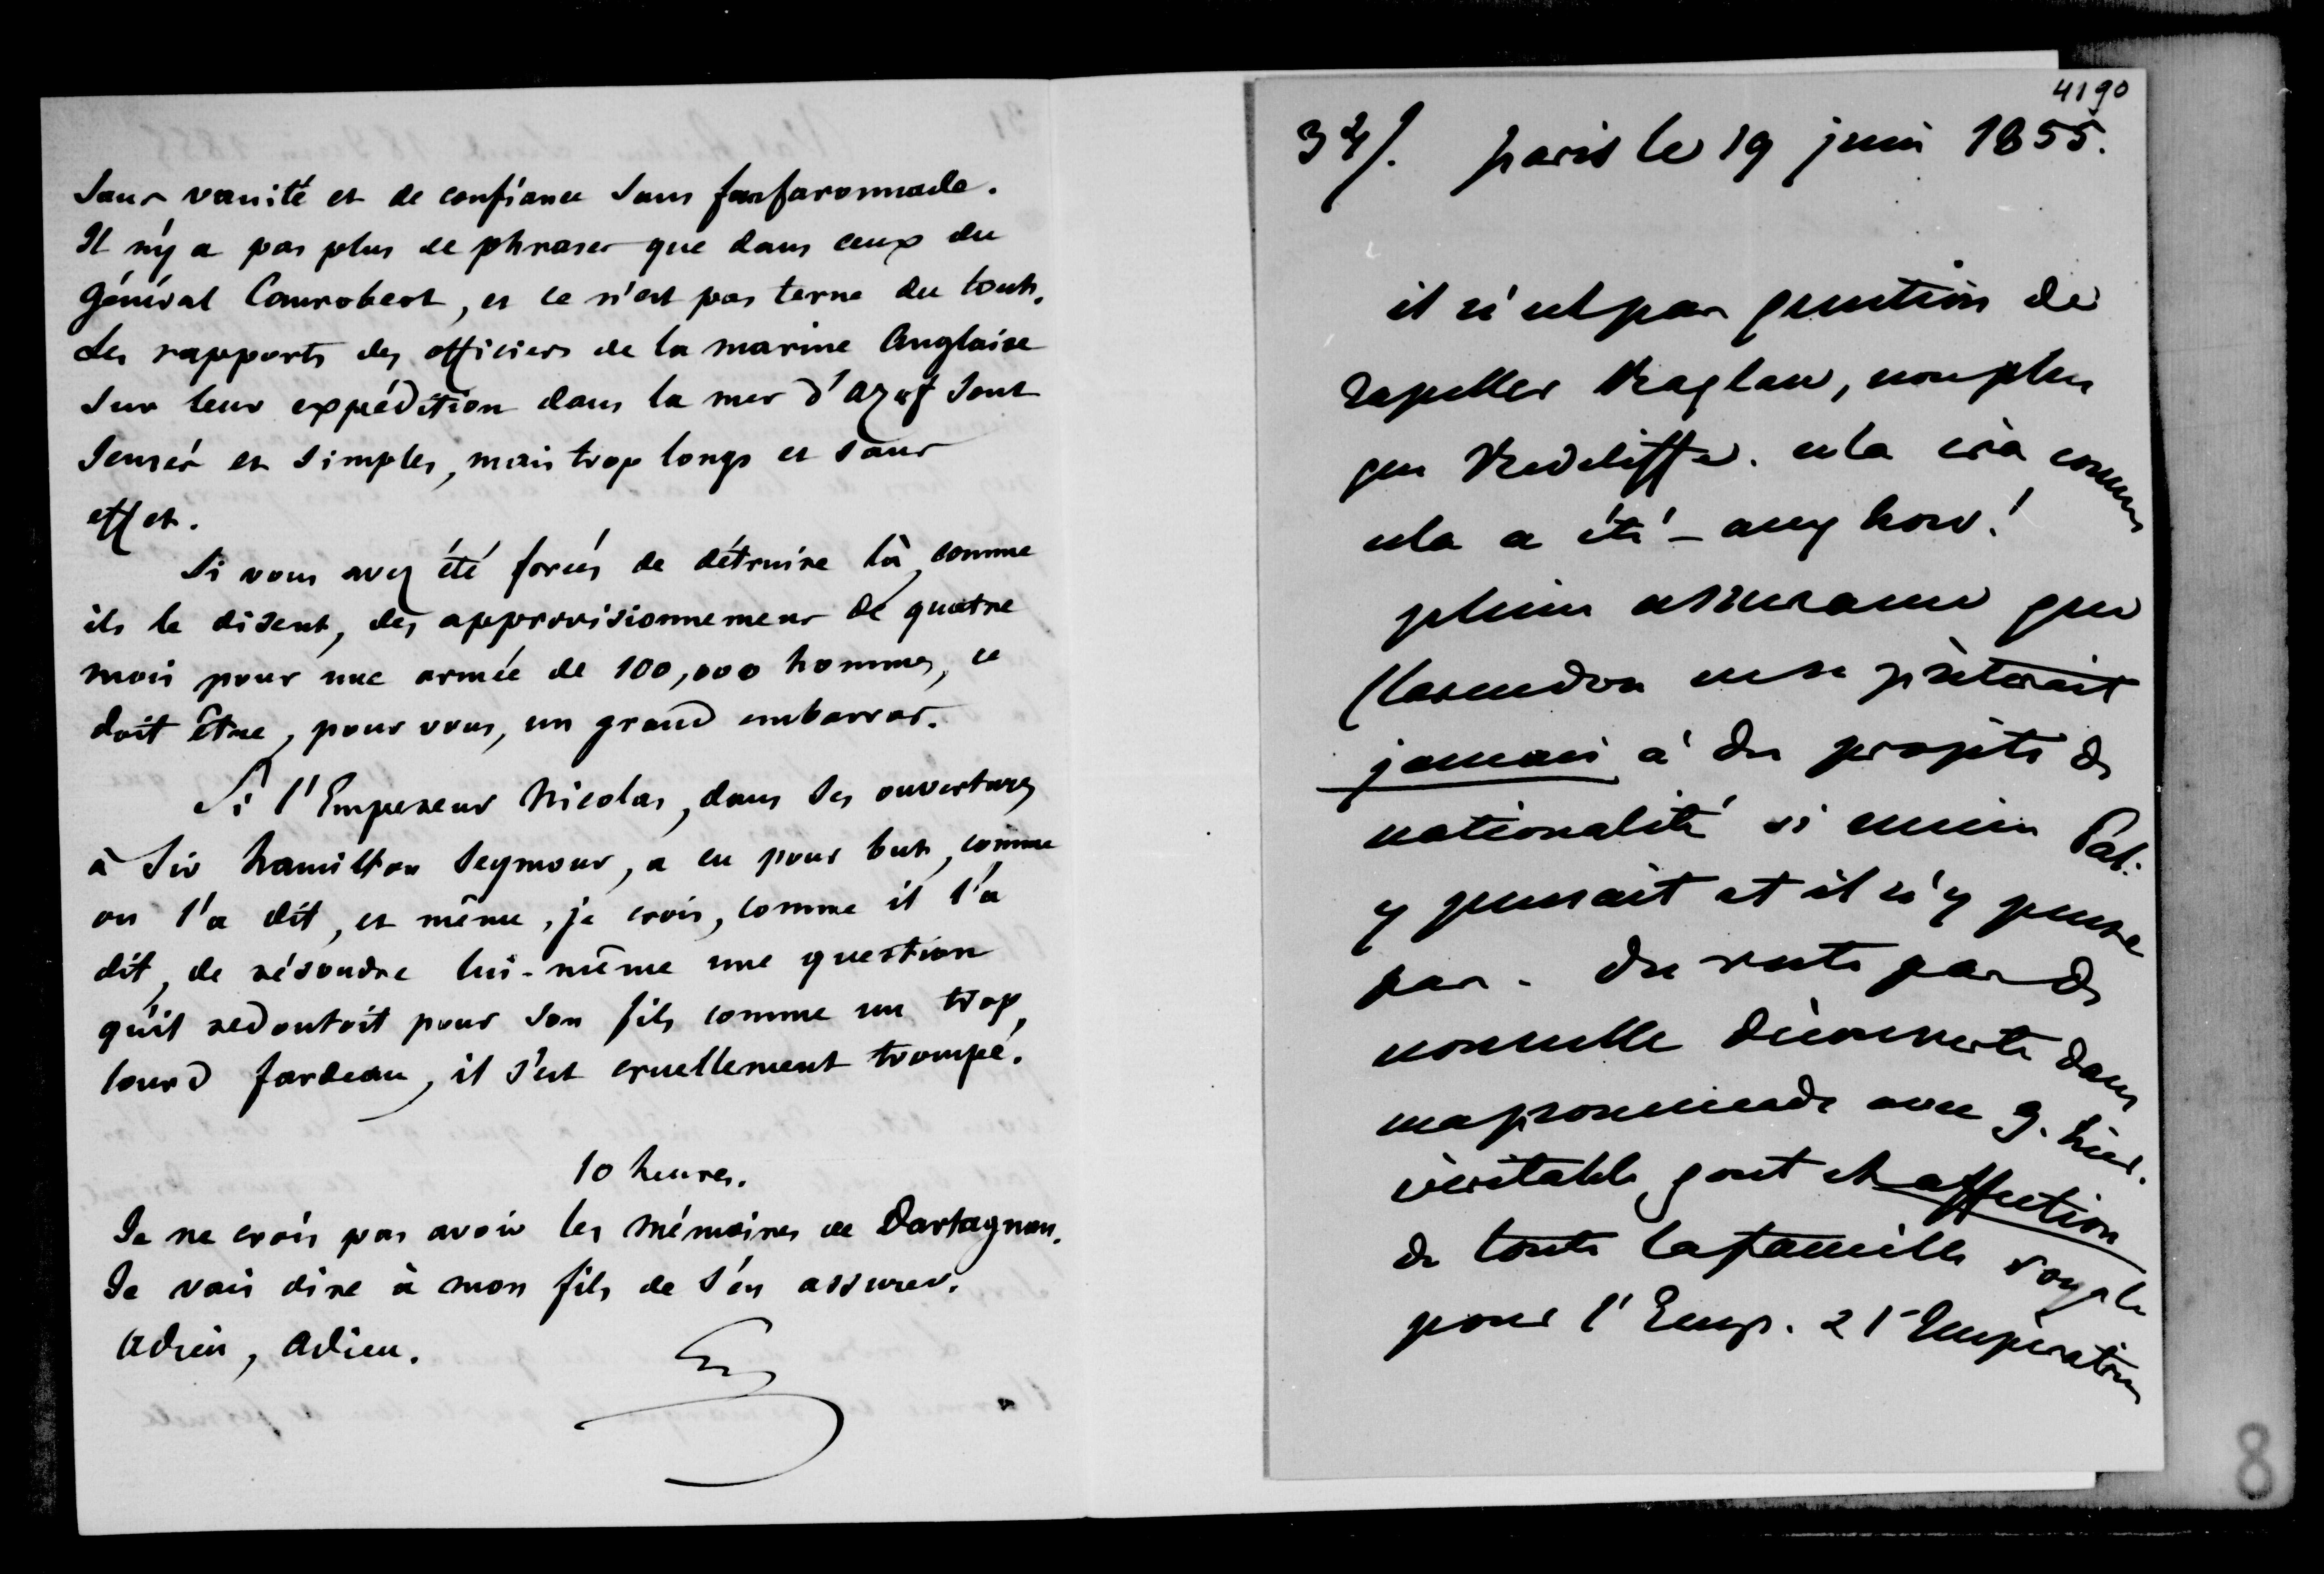 sans vanité et de confiance sans fanfaronnade.
Il n'y a pas plus de phrases que dans ceux du
Général Canrobert, et ce n'est pas terne du tout.
Les rapports des officiers de la marine Anglaise
sur leur expédition dans la mer d'Azof sont
sensés et simples, mais trop longs et sans
effet.
Si vous avez été forcés de détruire là, comme
ils le disent, des approvisionnemens de quatre
mois pour une armée de 100,000 hommes, ce
doit être, pour vous, un grand embarras.
Si l'Empereur Nicolas, dans ses ouvertures
à Sir hamilton Seymour, a eu pour but, comme
on l'a dit, et même, je crois, comme il l'a
dit, de résoudre lui-même une question
qu'il redoutoit pour son fils comme un trop
lourd fardeau, il s'est cruellement trompé.
10 heures.
Je ne crois pas avoir les mémoires de Dartagnan.
Je vais dire à mon fils de s'en assurer.
Adieu, Adieu.
4190
34/. paris le 19 juin 1855.
il n'est pas question de
rapeller Raglan, non plus
que Redcliffe. cela ira comme
cela a été - any how!
pleine assurance que
Clarendon ne se prêterait
jamais à des projets de
nationalité si même Pal.
y pensait et il n'y pense
pas. du reste pas de
nouvelle découverte dans
ma promenade avec g. hier.
véritable gout et affection
de toute la famille royale
pour l'Emp. & l'Impératrice
8